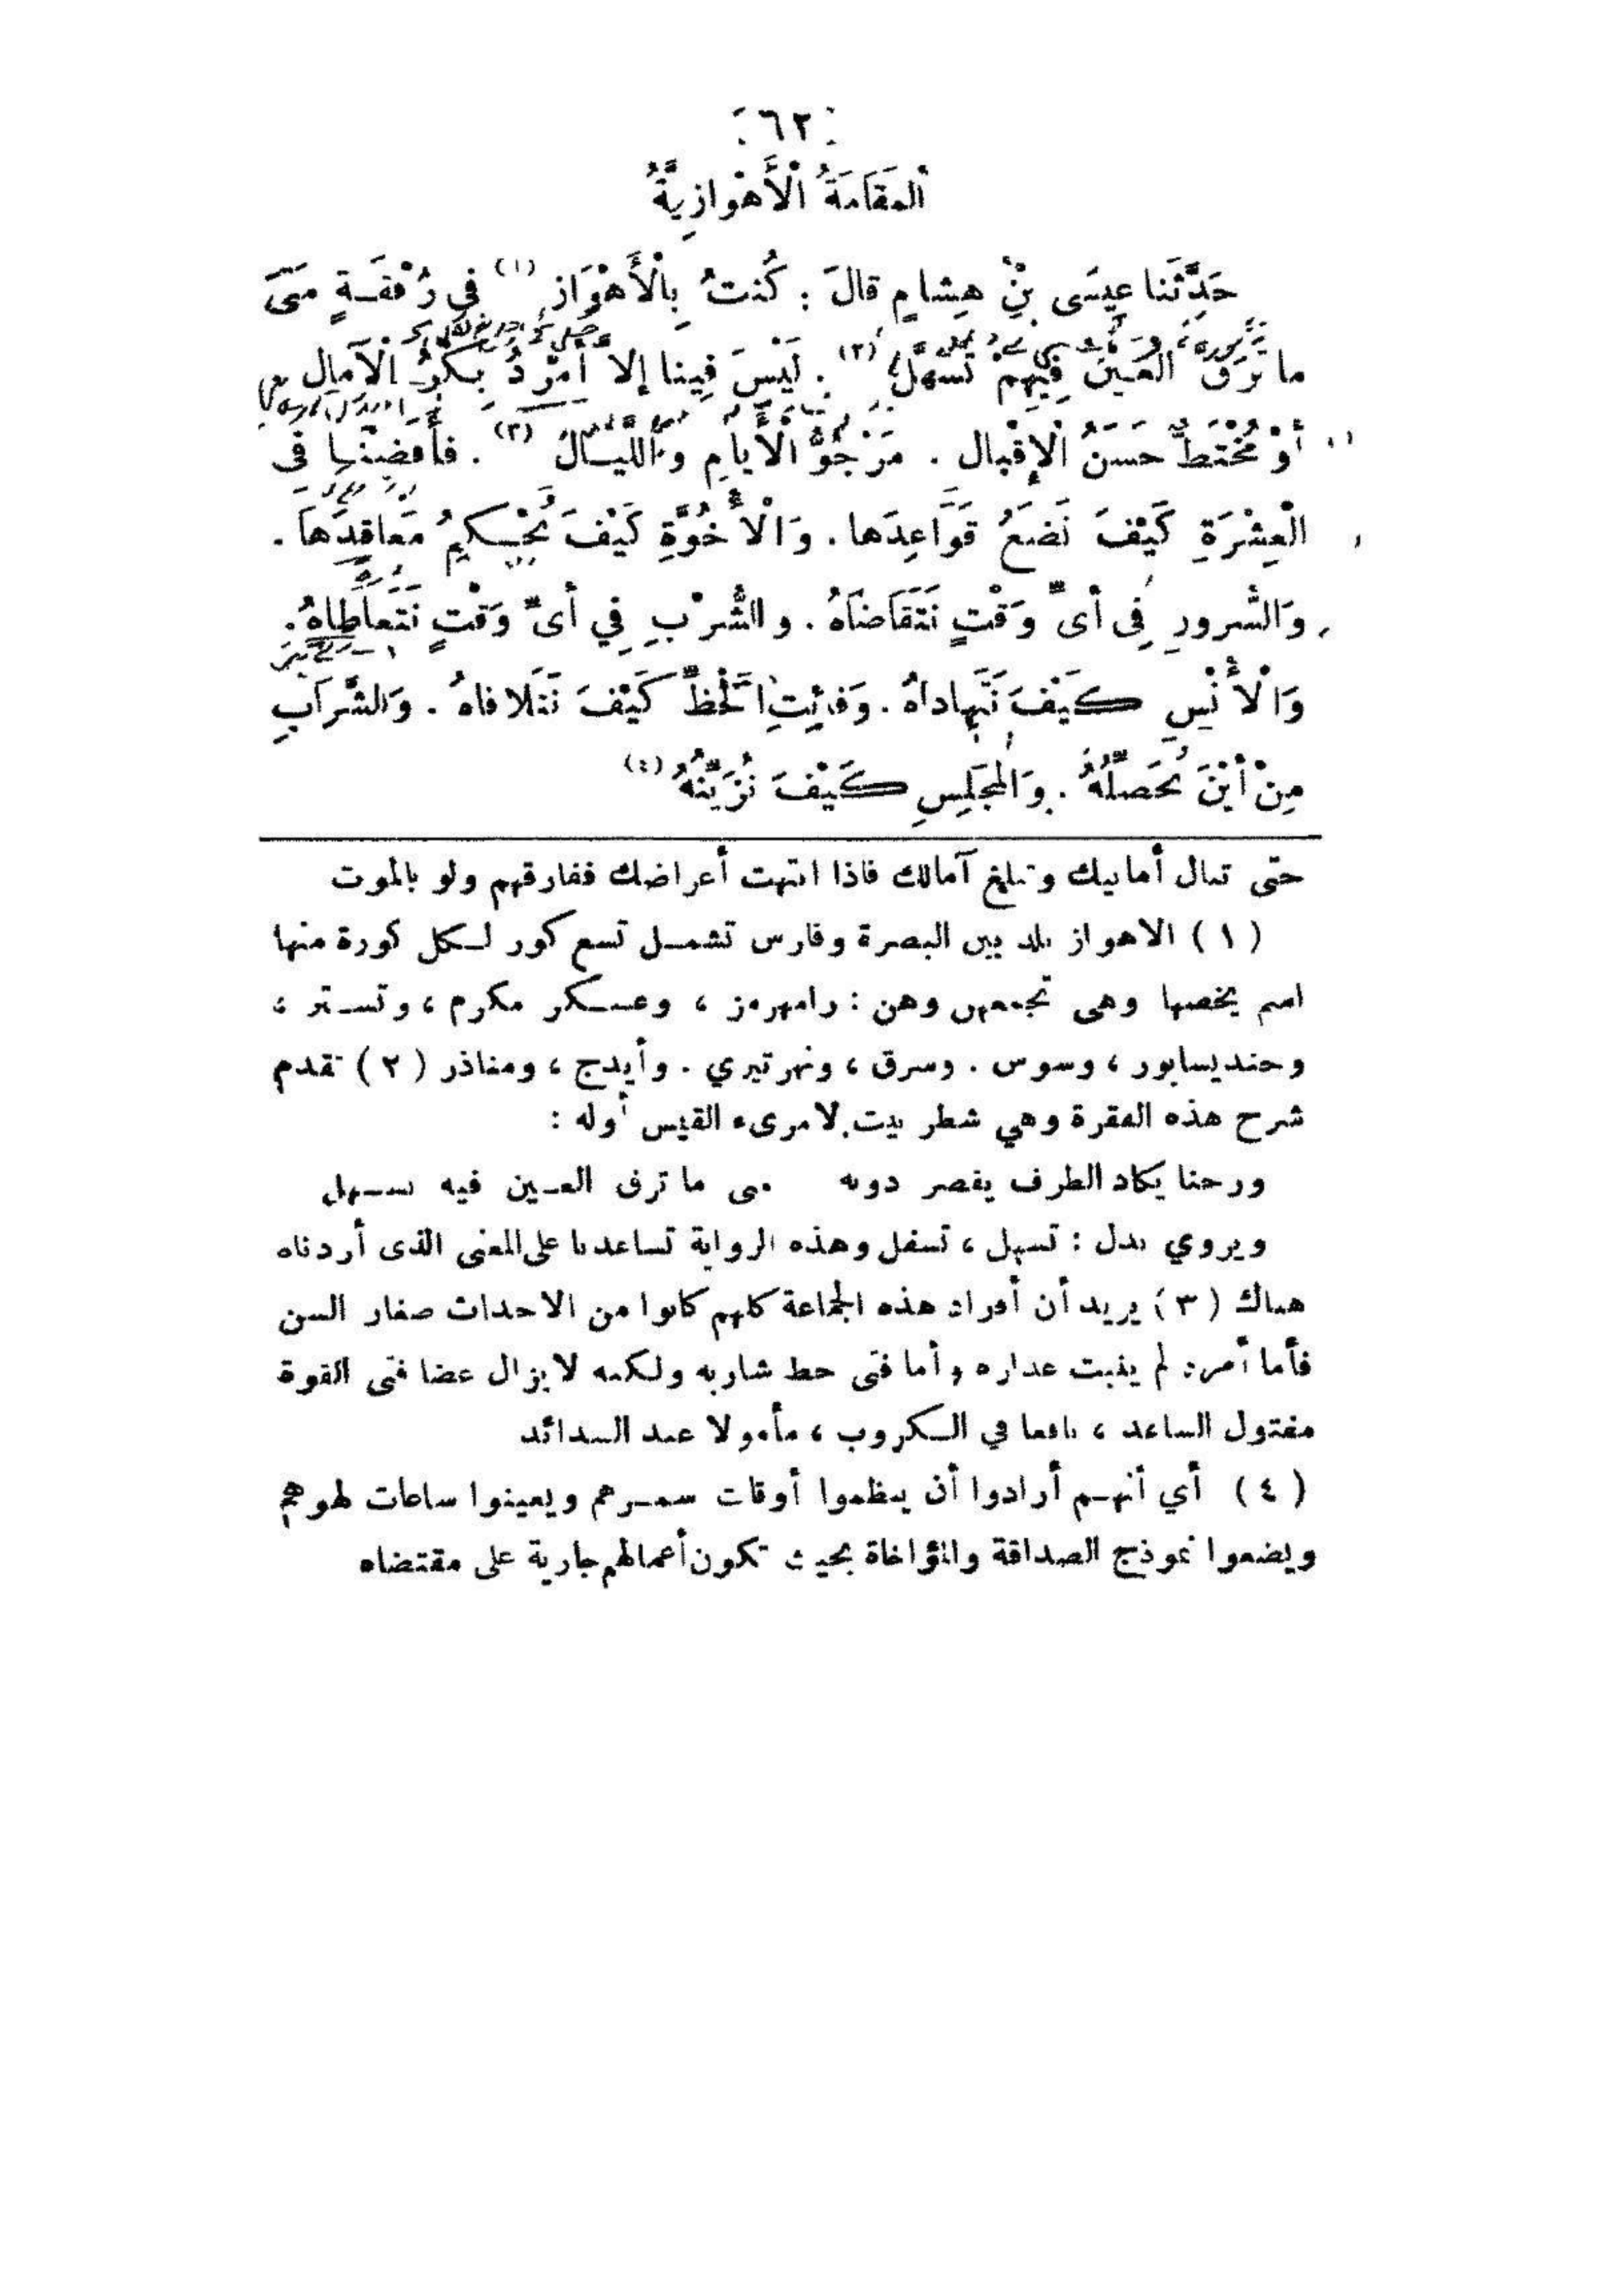 ٦٢
ٱلمَقَامَةُ الْأَهْوازِيَّةُ
حَدَّثَنا عِيسَى بْنُ هِشامٍ قالَ : كُنتُ بِالْأَهْوَازِ (١) فِي رُفْقَةٍ مَتَى
ما تَرَقَّ الْعَيْنُ فِيهِمْ تَسَهَّلُ (٢) . لَيْسَ فِينا إلاَّ أَمْرَدُ بِكْرُ الْآمالِ
أَوْ مُخْتَطٌّ حَسَنُ الْإِقْبالِ . مَرْجُوُّ الْأَيَّامِ وَاللَّيالُ (٣) . فأَفَضْنا فِى
الْعِشْرَةِ كَيْفَ نَضَعُ قَوَاعِدَها . وَالْأُخُوَّةِ كَيْفَ نُحْكِمُ مَعاقِدَهَا .
وَالسُّرورِ فِى أىِّ وَقْتٍ نَتَقَاضَاهُ . والشُّرْبِ فِي أىِّ وَقْتٍ نَتَعاطاهُ .
وَالْأُنْسِ كَيْفَ نَتَهاداهُ . وَفائِتِ الْحَظِّ كَيْفَ نَتَلافاهُ . وَالشَّرَابِ
مِنْ أَيْنَ نُحَصِّلُهُ . وَالمَجْلِسِ كَيْفَ نُزَيِّنُهُ (٤)
حتى تنال أمانيك وتبلغ آمالك فاذا انتهت أغراضك ففارقهم ولو بالموت
( ١ ) الاهواز بلد بين البصرة وفارس تشمل تسع كور لكل كورة منها
اسم يخصها وهى تجمعهن وهن : رامهرمز ، وعسكر مكرم ، وتستر ،
وجنديسابور ، وسوس . وسرق ، ونهرتيري . وأيدج ، ومناذر ( ٢ ) تقدم
شرح هذه الفقرة وهي شطر بيت لامرىء القيس أوله :
ورحنا يكاد الطرف يقصر دونه متى ما ترق العين فيه تسهل
ويروي بدل : تسهل ، تسفل وهذه الرواية تساعدنا على المعنى الذى أردناه
هناك ( ٣ ) يريد أن أفراد هذه الجماعة كلهم كانوا من الاحداث صغار السن
فأما أمرد لم ينبت عذاره وأما فتى خط شاربه ولكنه لا يزال غضا فتى القوة
مفتول الساعد ، نافعا في الكروب ، مأمولا عند الشدائد
( ٤ ) أي أنهم أرادوا أن ينظموا أوقات سمرهم ويعينوا ساعات لهوهم
ويضعوا نموذج الصداقة والمؤاخاة بحيث تكون أعمالهم جارية على مقتضاه